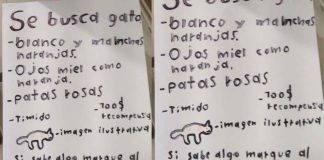 Se busca gato
-blanco y manchas
naranjas.
-Ojos miel como
naranja.
-patas rosas
-Timido
-700$
recompensa
-imagen ilustrativa
Si sabe algo marque al
Se busca gato
-blanco y manchas
naranjas.
-Ojos miel como
naranja.
-patas rosas
-Timido
-700$
recompensa
-imagen ilustrativa
Si sabe algo marque al